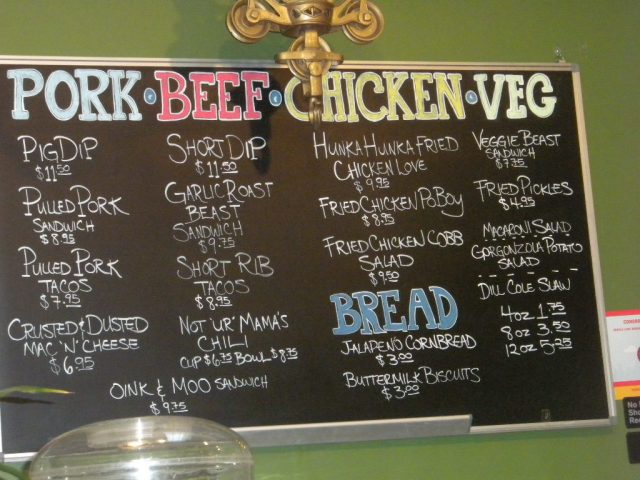 PORK · BEEF · CHICKEN · VEG
PIG DIP
$11.50
PULLED PORK
SANDWICH
$8.95
PULLED PORK
TACOS
$7.95
CRUSTED & DUSTED
MAC 'N' CHEESE
$6.95
SHORT DIP
$11.50
GARLIC ROAST
BEAST
SANDWICH
$9.75
SHORT RIB
TACOS
$8.95
NOT 'UR' MAMA'S
CHILI
CUP $6.75 BOWL $8.75
OINK & MOO SANDWICH
$9.75
HUNKA HUNKA FRIED
CHICKEN LOVE
$9.95
FRIED CHICKEN PO BOY
$8.95
FRIED CHICKEN COBB
SALAD
$9.50
BREAD
JALAPEÑO CORNBREAD
$3.00
BUTTERMILK BISCUITS
$3.00
VEGGIE BEAST
SANDWICH
$7.75
FRIED PICKLES
$4.95
MACARONI SALAD
GORGONZOLA POTATO
SALAD
DILL COLE SLAW
4oz 1.75
8oz 3.50
12oz 5.25
No